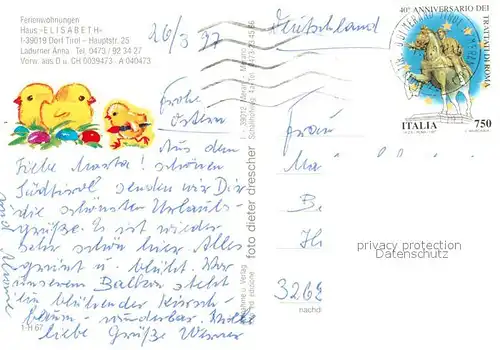 Ferienwohnungen
Haus »ELISABETH«
I-39019 Dorf Tirol – Hauptstr. 25
Ladurner Anna · Tel. 0473 / 92 34 27
Vorw. aus D u. CH 0039473 - A 040473
26/3 97
Frohe
Ostern
Aus dem
Liebe Marta! schönen
Südtirol senden wir Dir
die schönsten Urlaubs-
grüße. Es ist wieder
sehr schön hier. Alles
grünt u. blüht. Vor
unserem Balkon steht
ein blühender Kirsch-
baum - wunderbar.
liebe Grüße Werner
und
1-H 67
foto dieter drescher
I-39012 Meran - Merano
Deutschland
Frau
Ma
B
H
3269
nachd
40° ANNIVERSARIO DEI TRATTATI DI ROMA
ITALIA 750
privacy protection
Datenschutz